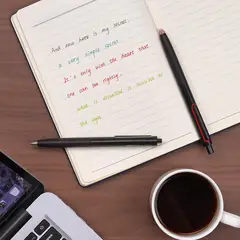 And now here is my secret,
a very simple secret:
It's only with the heart that
one can see rightly,
what is essential is invisible to
the eyes.